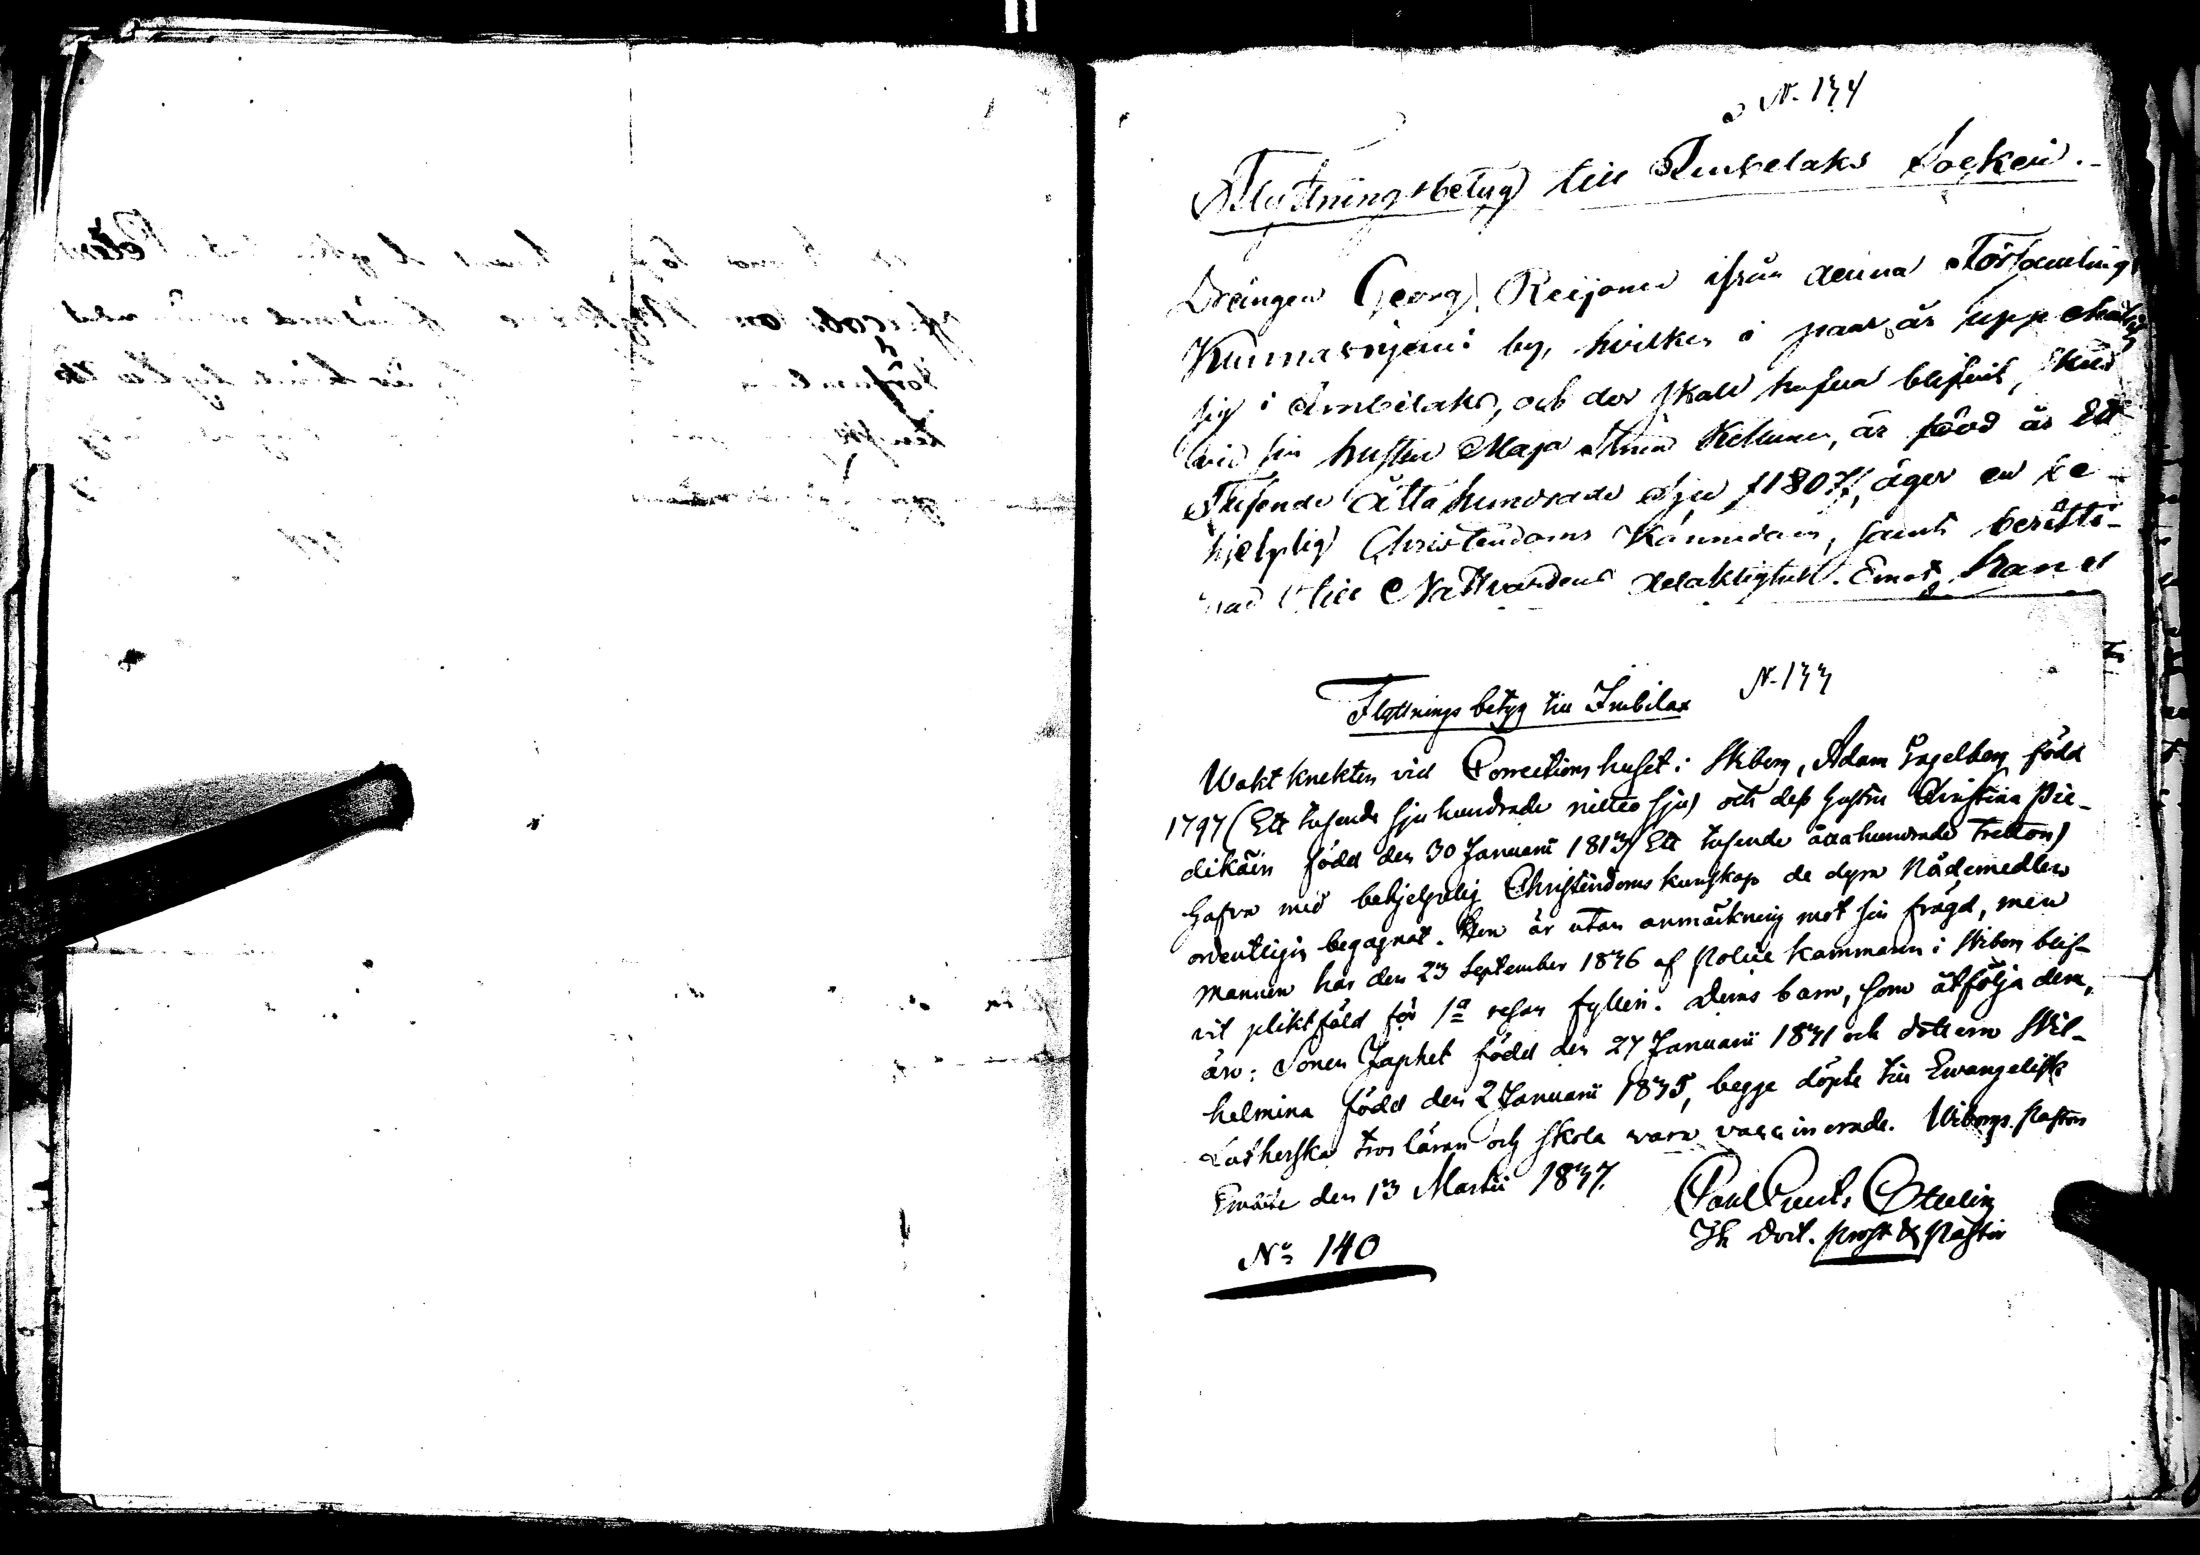 N. 134
Flyttningsbetyg till Imbelaks Socken.
Drängen Georg Reijonen ifrån denna Församling
by, hvilken i paar år uppehållit
sig i Imbilaks, och der skall hafva blifvit skild
vid sin hustru Maja Kettunen, är född år Ett
Tusende Åtta hundrade sju /1807/, äger en be-
hjelplig Christendoms Kännedom, samt berätti-
gad till Nattvardens delaktighet. Emot hans
N. 133
Flyttnings betyg till Imbilax
Wakt knekten vid Corrections huset i Wiborg, Adam Engelberg född
1797 (Ett tusende sju hundrade nittio sju) och dess hustru Christina Pie-
dikäin född den 30 Januarii 1813 (Ett tusende åttahundrade tretton)
hafva med behjelpelig Christendoms kunskap de dyra Nådemedlen
ordentligen begagnat. Hon är utan anmärkning mot sin frägd, men
mannen har den 23 September 1836 af Police Kammaren i Wiborg blif-
vit pliktfäld för 1a resan fylleri. Deras barn, som åtfölja dem,
äro: Sonen Japhet född den 27 Januarii 1831 och dottern Wil-
helmina född den 2 Januarii 1835, begge döpte till Evangelisk
Lutherska trosläran och skola vara vaccinerade. Wiborgs Pastors
Embete den 13 Martii 1837.
Th Doct. Prost & Pastor
No 140